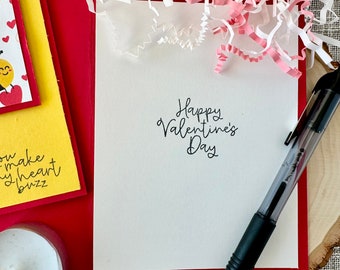 Happy
Valentine's
Day
you
make
my heart
buzz